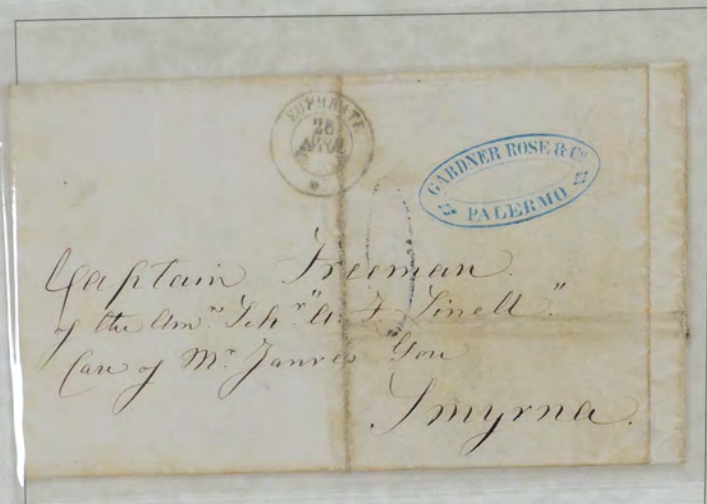 EUPHRATE
GARDNER ROSE & Co
PALERMO
Captain Freeman.
of the Amn. Schr. "A. F. Linell"
Care of Mr.
Smyrna.